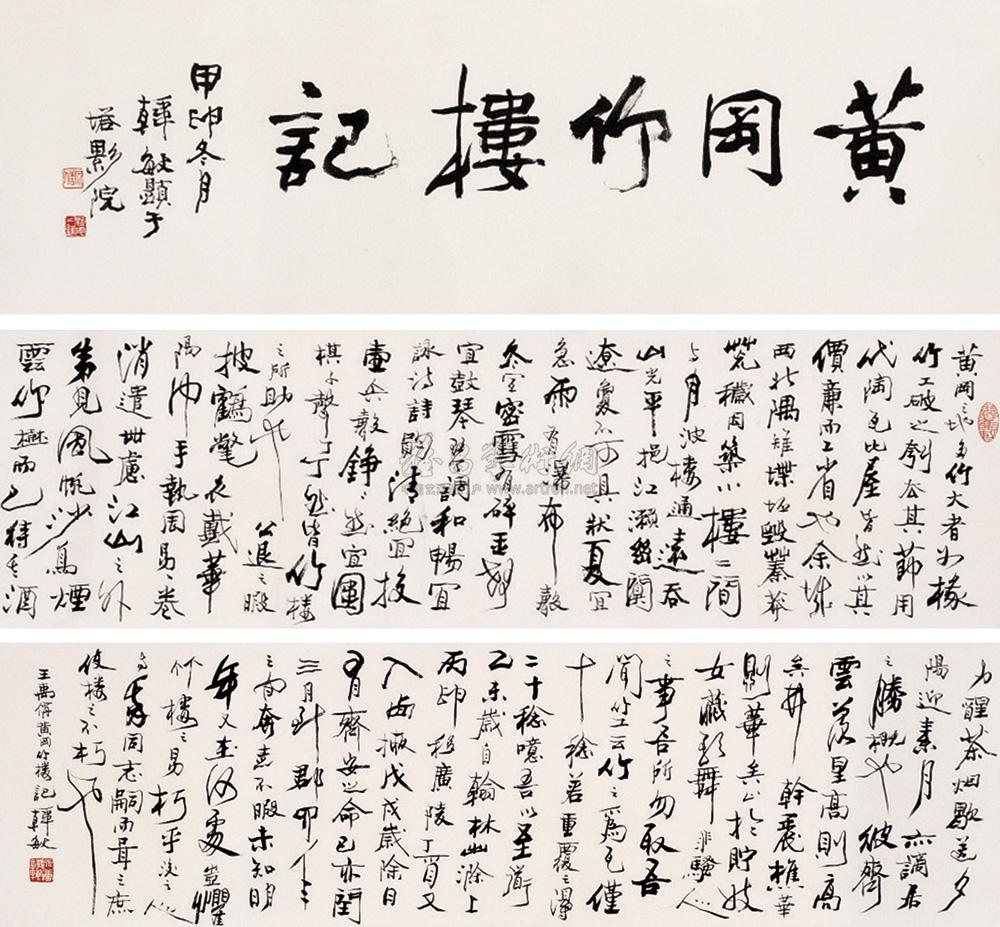 黄岡竹樓記
甲申冬月
韓敏題于
塔影院
黄岡之地多竹大者如椽
竹工破之刳去其節用
代陶瓦比屋皆然以其
價廉而工省也余城
西北隅雉堞圮毀蓁莽
荒穢因築小樓二間
与月波樓通遠吞
山光平挹江瀨幽闃
遼夐不可具狀夏宜
急雨有瀑布聲
冬宜密雪有碎玉聲
宜鼓琴琴調和暢宜
詠詩詩韻清絕宜投
壺矢聲錚々然宜圍
棋子聲丁丁然皆竹樓
之所助也公退之暇
披鶴氅衣戴華
陽巾手執周易一卷
消遣世慮江山之外
第見風帆沙鳥煙
雲竹樹而已待其酒
力醒茶烟歇送夕
陽迎素月亦謫居
之勝概也彼齊
雲落星高則高
矣井幹麗樵華
則華矣止於貯妓
女藏歌舞非騷人
之事吾所勿取吾
聞竹工云竹之爲瓦僅
十稔若重覆之得
二十稔噫吾以至道
乙未歲自翰林出滁上
丙申移廣陵丁酉又
入西掖戊戌歲除日
有齊安之命己亥閏
三月到郡四年之
間奔走不暇未知明
年又在何處豈懼
竹樓之易朽乎後之人
与我同志嗣而葺之庶
使樓之不朽也
王禹偁黄岡竹樓記 韓敏